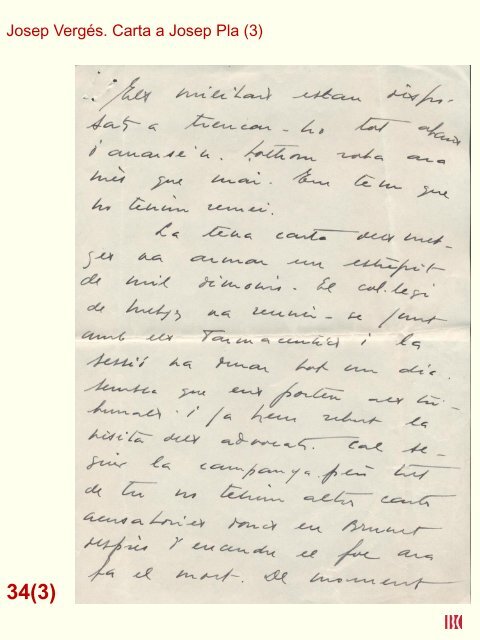 Josep Vergés. Carta a Josep Pla (3)
Els militars estan dispo-
sats a trencar-ho tot abans
d'anarse'n. Tothom roba ara
més que mai. Em tem que
no tenim remei.
La teva carta dels met-
ges va armar un estrèpit
de mil dimonis. El col.legi
de metges va reunir-se junt
amb els farmaceutics i la
sessió va durar tot un dia.
Sembla que ens porten als tri-
bunals i ja hem rebut la
visita dels advocats. Cal se-
guir la campanya però tret
de tu no tenim altres cartes
acusatories doncs en Brunet
després d'encendre el foc ara
fa el mort. De moment
34(3)